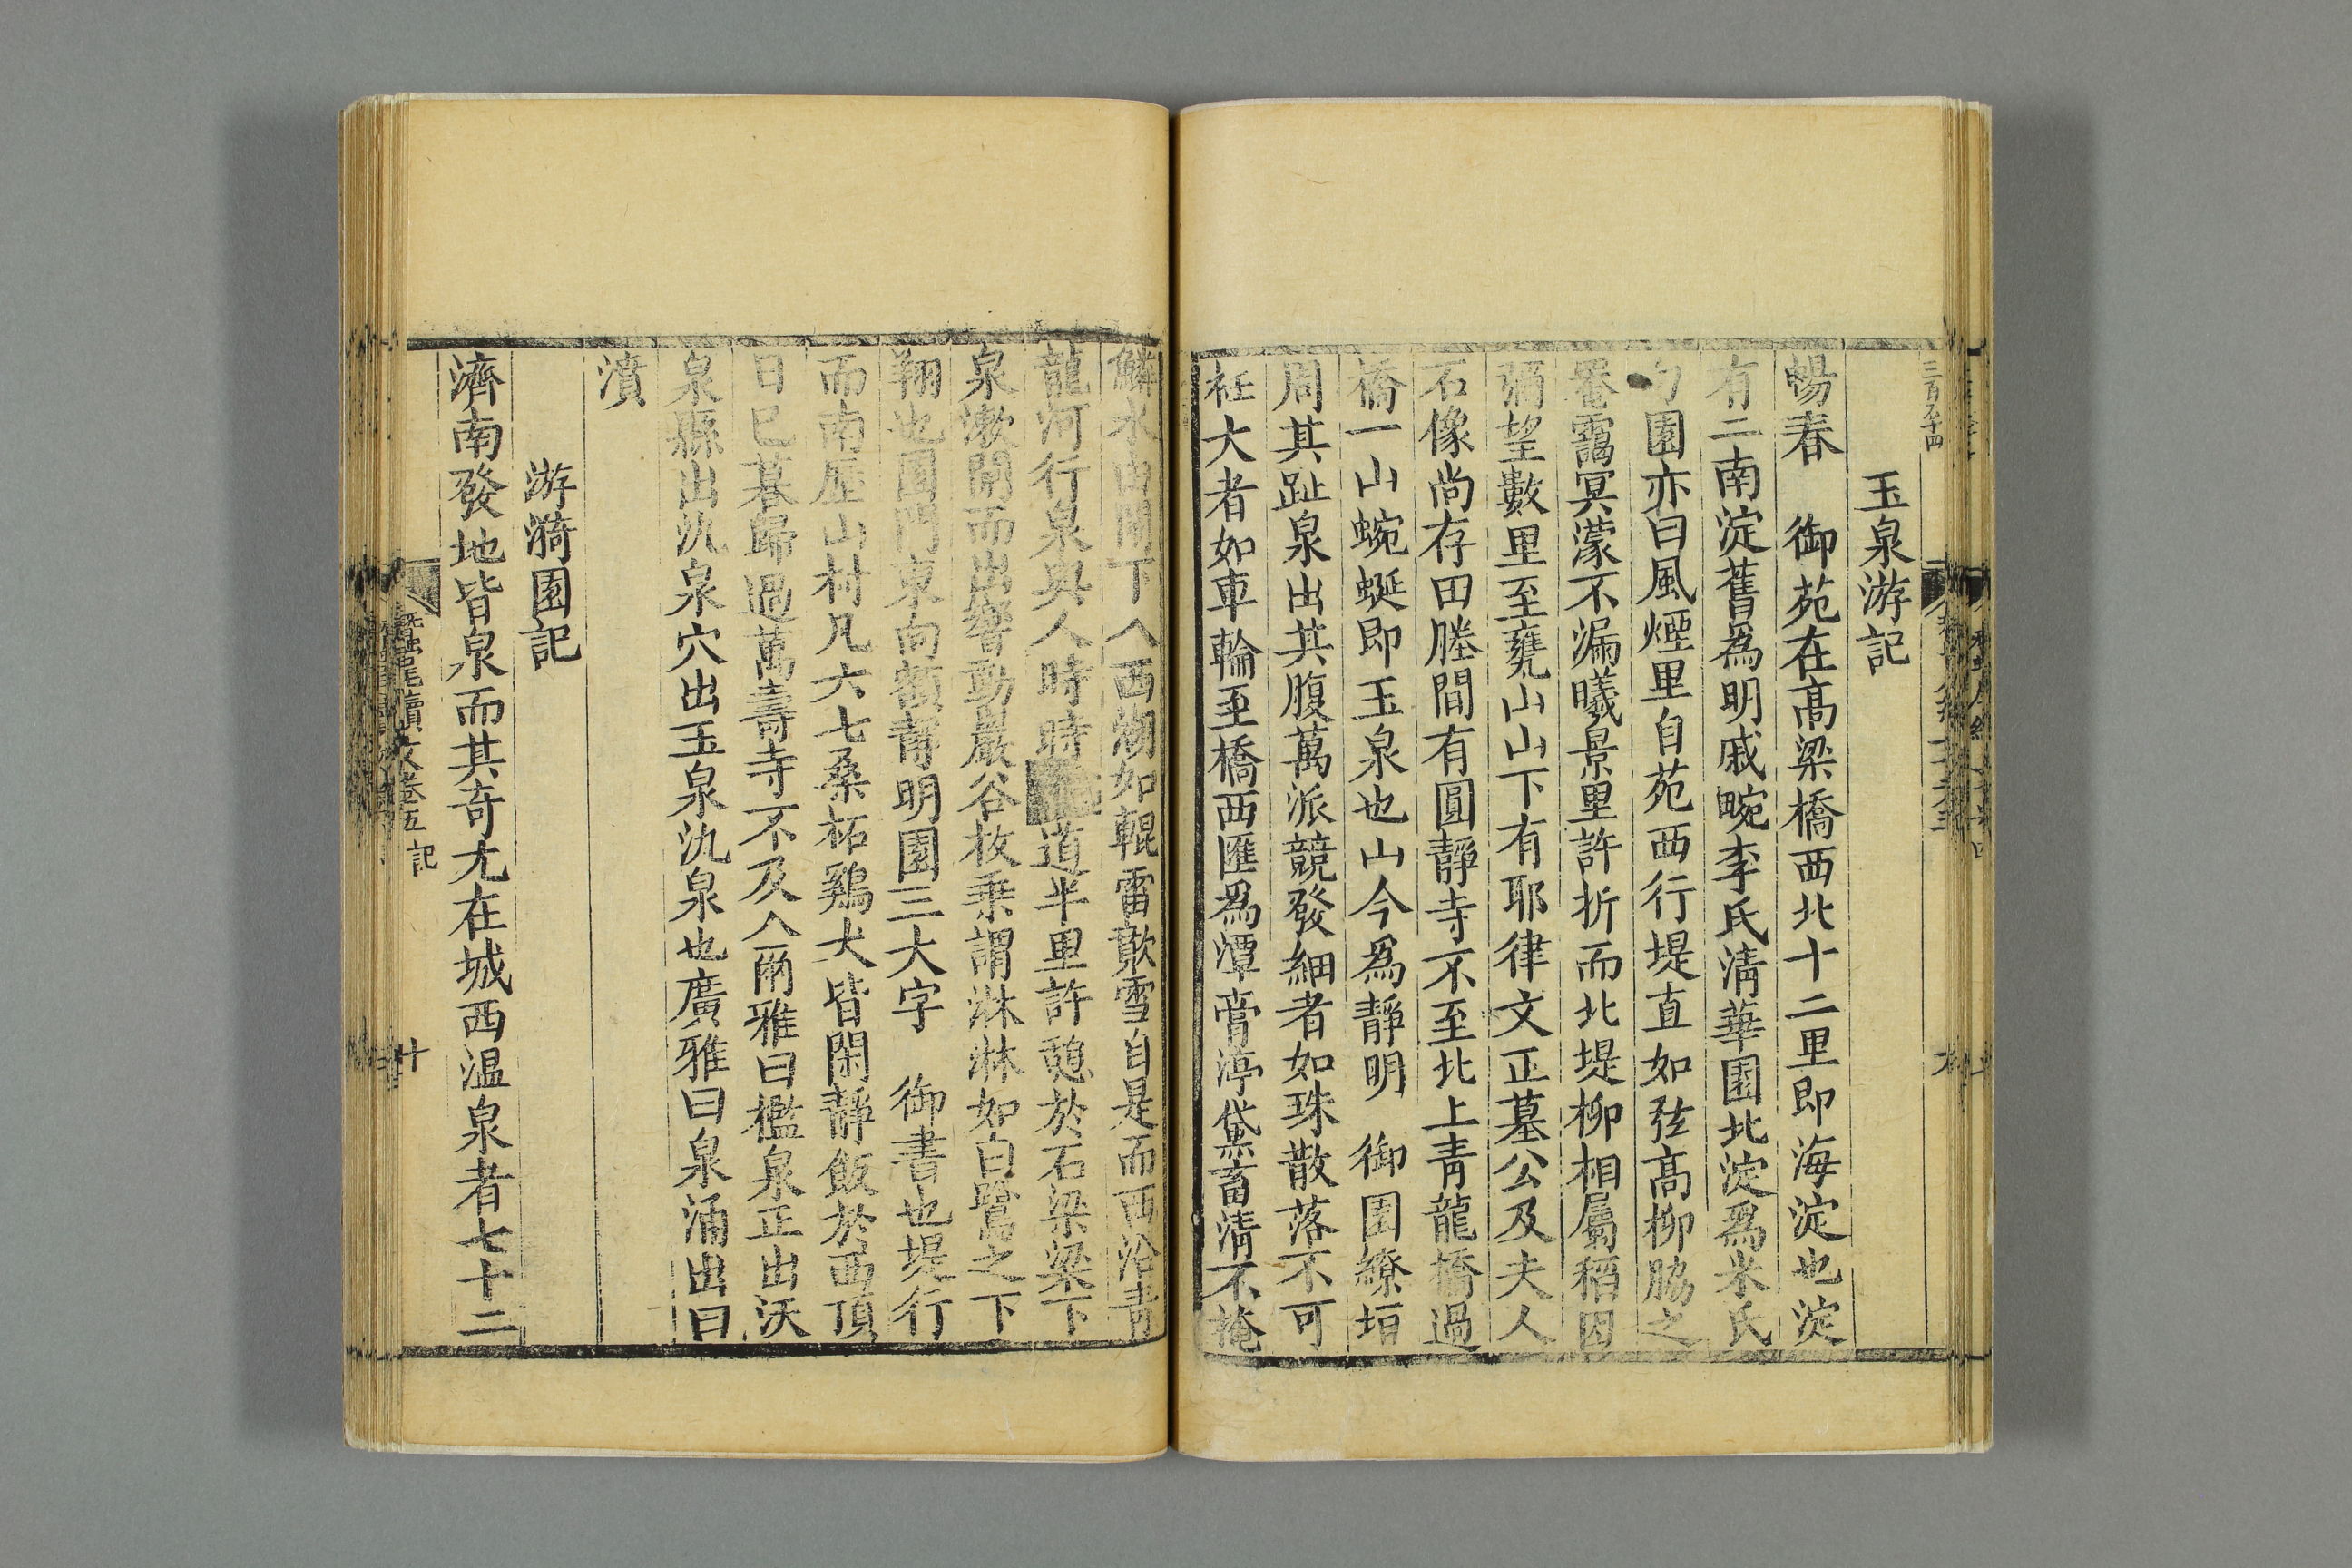 三百五十四
玉泉游記
暢春 御苑在髙梁橋西北十二里即海淀也淀
有二南淀舊爲明戚畹李氏清華園北淀爲米氏
勺園亦曰風煙里自苑西行堤直如弦髙柳脇之
罨靄冥濛不漏曦景里許折而北堤柳相屬稻田
彌望數里至甕山山下有耶律文正墓公及夫人
石像尚存田塍間有圓靜寺不至北上青龍橋過
橋一山蜿蜒即玉泉也山今爲靜明 御園繚垣
周其趾泉出其腹萬派競發細者如珠散落不可
袵大者如車輪至橋西匯爲潭膏渟黛畜清不掩
鱗水由閘下入西湖如輥雷歕雪自是而西沿青
龍河行泉與人時時道半里許憩於石梁梁下
泉漱閘而出響動巖谷枚乗謂淋淋如白鷺之下
翔也園門東向額靜明園三大字 御書也堤行
而南歴山村凡六七桑柘鷄犬皆閑靜飯於西頂
日已暮歸過萬壽寺不及入爾雅曰檻泉正出沃
泉縣出氿泉穴出玉泉氿泉也廣雅曰泉涌出曰
濆
游漪園記
濟南發地皆泉而其奇尤在城西温泉者七十二
蠶尾續文卷五 記
十